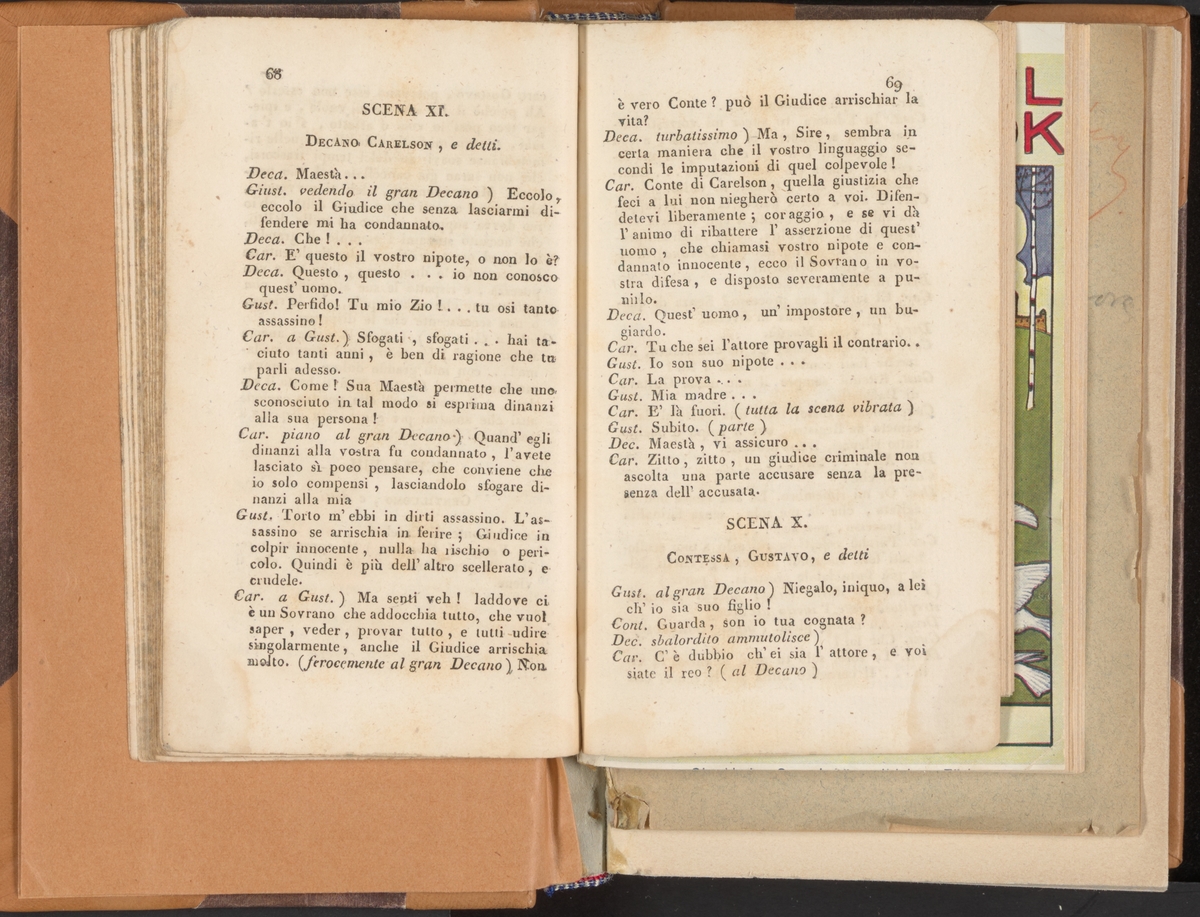 68
SCENA XI.
DECANO CARELSON, e detti.
Deca. Maestà...
Giust. vedendo il gran Decano ) Eccolo,
eccolo il Giudice che senza lasciarmi di-
fendere mi ha condannato.
Deca. Che ! . . .
Car. E' questo il vostro nipote, o non lo è?
Deca. Questo, questo . . . io non conosco
quest' uomo.
Gust. Perfido! Tu mio Zio !...tu osi tanto
assassino !
Car. a Gust. ) Sfogati, sfogati . . . hai ta-
ciuto tanti anni, è ben di ragione che tu
parli adesso.
Deca. Come ! Sua Maestà permette che uno
sconosciuto in tal modo si esprima dinanzi
alla sua persona !
Car. piano al gran Decano ) Quand' egli
dinanzi alla vostra fu condannato, l'avete
lasciato sì poco pensare, che conviene che
io solo compensi, lasciandolo sfogare di-
nanzi alla mia
Gust. Torto m' ebbi in dirti assassino. L'as-
sassino se arrischia in ferire ; Giudice in
colpir innocente, nulla ha rischio o peri-
colo. Quindi è più dell' altro scellerato, e
crudele.
Car. a Gust. ) Ma senti veh ! laddove ci
è un Sovrano che addocchia tutto, che vuol
saper, veder, provar tutto, e tutti udire
singolarmente, anche il Giudice arrischia
molto. (ferocemente al gran Decano ) Non
69
è vero Conte ? può il Giudice arrischiar la
vita?
Deca. turbatissimo ) Ma, Sire, sembra in
certa maniera che il vostro linguaggio se-
condi le imputazioni di quel colpevole !
Car. Conte di Carelson, quella giustizia che
feci a lui non niegherò certo a voi. Difen-
detevi liberamente ; coraggio, e se vi dà
l' animo di ribattere l' asserzione di quest'
uomo, che chiamasi vostro nipote e con-
dannato innocente, ecco il Sovrano in vo-
stra difesa, e disposto severamente a pu-
nirlo.
Deca. Quest' uomo, un' impostore, un bu-
giardo.
Car. Tu che sei l'attore provagli il contrario..
Gust. Io son suo nipote ...
Car. La prova ...
Gust. Mia madre ...
Car. E' là fuori. ( tutta la scena vibrata )
Gust. Subito. ( parte )
Dec. Maestà, vi assicuro ...
Car. Zitto, zitto, un giudice criminale non
ascolta una parte accusare senza la pre-
senza dell' accusata.
SCENA X.
CONTESSA, GUSTAVO, e detti
Gust. al gran Decano ) Niegalo, iniquo, a lei
ch' io sia suo figlio !
Cont. Guarda, son io tua cognata ?
Dec. sbalordito ammutolisce )
Car. C' è dubbio ch' ei sia l' attore, e voi
siate il reo ? ( al Decano )
L
OK